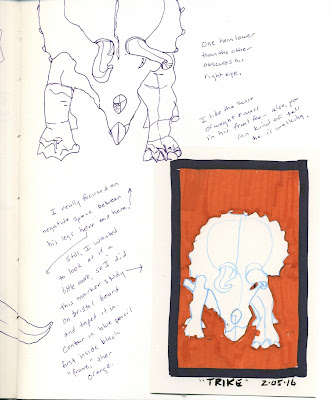 One horn lower
than the other
obscures his
right eye.
I like the sense
of weight & mass
in his front feet – also, you
can kind of tell
he is walking.
I really focused on
negative space between
his legs here and here!
Still, I wanted
to look at it a
little more, so I did
this marker study
on bristol board
and taped it in.
Contour in blue pencil
first inside black
"frame," then
orange.
"TRIKE" 2·05·16